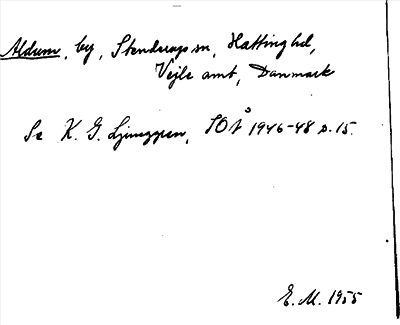 Aldum, by, Stenderup sn, Hatting hd,
Vejle amt, Danmark
Se K. G. Ljunggren, SOÅ 1946-48 s. 15.
E. M. 1955